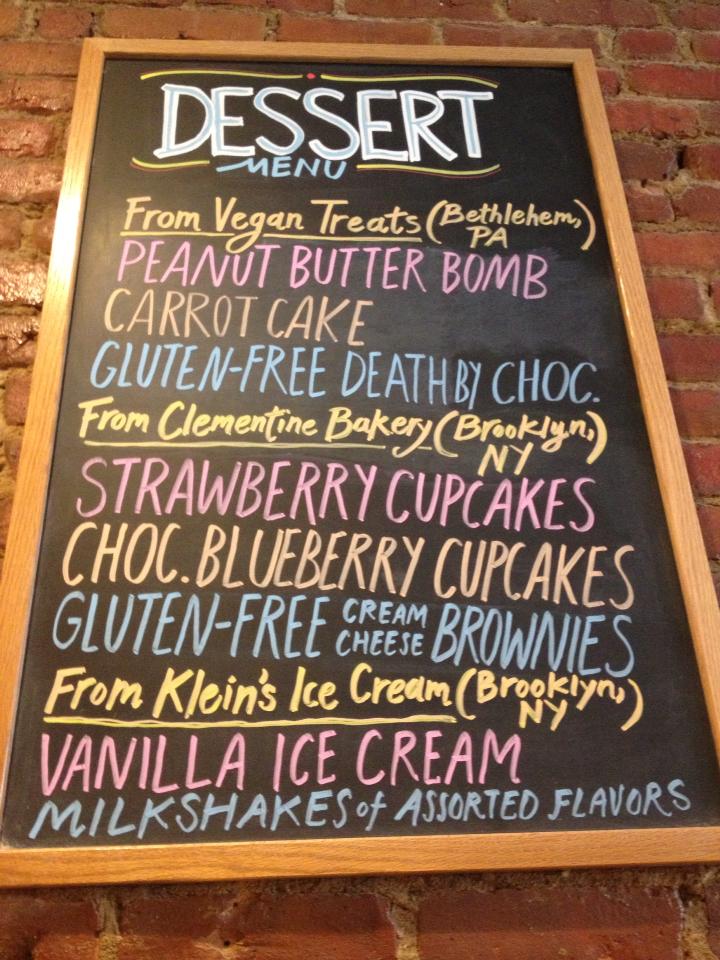 DESSERT
MENU
From Vegan Treats (Bethlehem, PA)
PEANUT BUTTER BOMB
CARROT CAKE
GLUTEN-FREE DEATH BY CHOC.
From Clementine Bakery (Brooklyn, NY)
STRAWBERRY CUPCAKES
CHOC. BLUEBERRY CUPCAKES
GLUTEN-FREE CREAM CHEESE BROWNIES
From Klein's Ice Cream (Brooklyn, NY)
VANILLA ICE CREAM
MILKSHAKES of ASSORTED FLAVORS